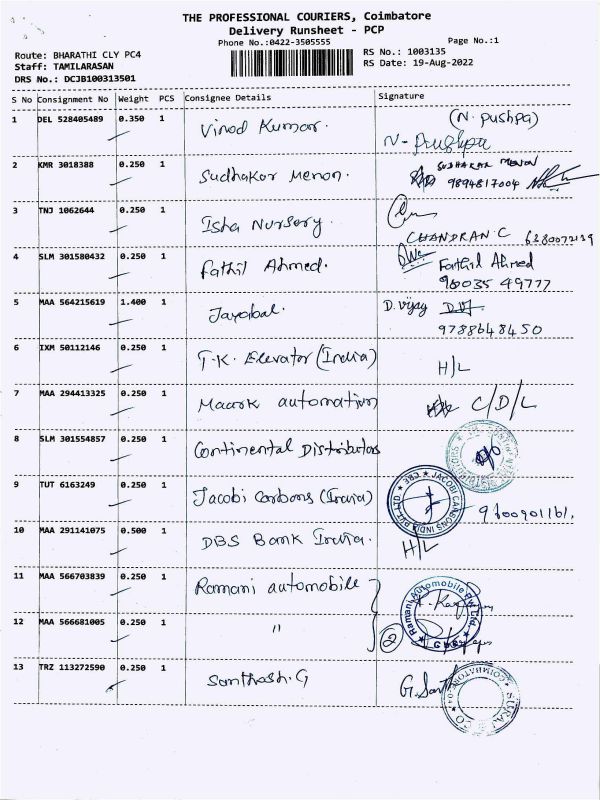 THE PROFESSIONAL COURIERS, Coimbatore
Delivery Runsheet - PCP
Phone No.:0422-3505555
Page No.:1
Route: BHARATHI CLY PC4
RS No.: 1003135
Staff: TAMILARASAN
RS Date: 19-Aug-2022
DRS No.: DCJB100313501
S No Consignment No Weight PCS Consignee Details Signature
1 DEL 528405489 0.350 1 Vinod Kumar. (N. Pushpa)
N-Pushpa
2 KMR 3018388 0.250 1 Sudhakar Menon. SUDHAKAR MENON
9894817004
3 TNJ 1062644 0.250 1 Isha Nursery.
CHANDRAN.C 6280072119
4 SLM 301580432 0.250 1 Fathil Ahmed. Fathil Ahmed
90035 49777
5 MAA 564215619 1.400 1 Jayabal. D. Vijay
9788648450
6 IXM 50112146 0.250 1 T.K. Elevator (India) H/L
7 MAA 294413325 0.250 1 Maark automation C/D/L
8 SLM 301554857 0.250 1 Continental Distributors
9 TUT 6163249 0.250 1 Jacobi Carbons (India)
JACOBI CARBONS INDIA PVT LTD CBE
9600901161.
10 MAA 291141075 0.500 1 DBS Bank India. H/L
11 MAA 566703839 0.250 1 Ramani automobile
Ramani Automobile Pvt. Ltd.
12 MAA 566681005 0.250 1 " 2
13 TRZ 113272590 0.250 1 Santhosh.G G. Santh
COIMBATORE